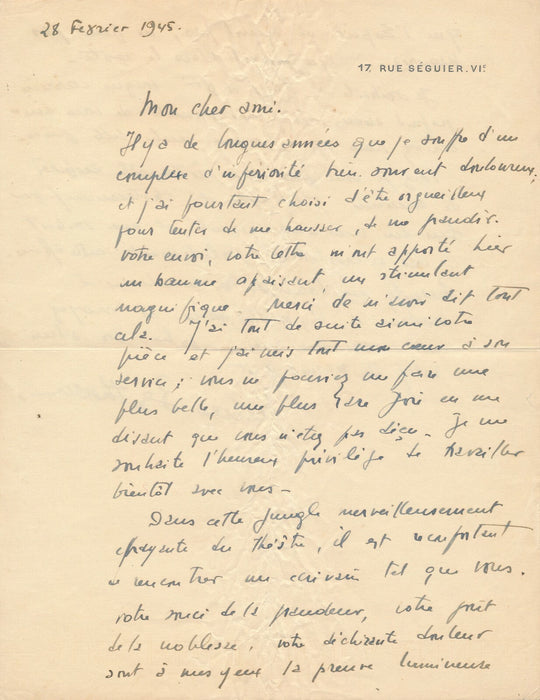 28 Février 1945.
17, RUE SÉGUIER. VIe
Mon cher ami.
Il y a de longues années que je souffre d'un
complexe d'infériorité bien souvent douloureux,
et j'ai pourtant choisi d'être orgueilleux
pour tenter de me hausser, de me grandir.
Votre envoi, votre lettre m'ont apporté hier
un baume apaisant, un stimulant
magnifique. Merci de m'avoir dit tout
cela. J'ai tout de suite aimé votre
pièce et j'ai mis tout mon cœur à son
service ; vous ne pouviez me faire une
plus belle, une plus rare joie en me
disant que vous n'étiez pas déçu. Je me
souhaite l'heureux privilège de travailler
bientôt avec vous -
Dans cette jungle merveilleusement
effrayante du théâtre, il est réconfortant
de rencontrer un écrivain tel que vous.
Votre souci de la grandeur, votre goût
de la noblesse, votre déchirante douleur
sont à mes yeux la preuve lumineuse